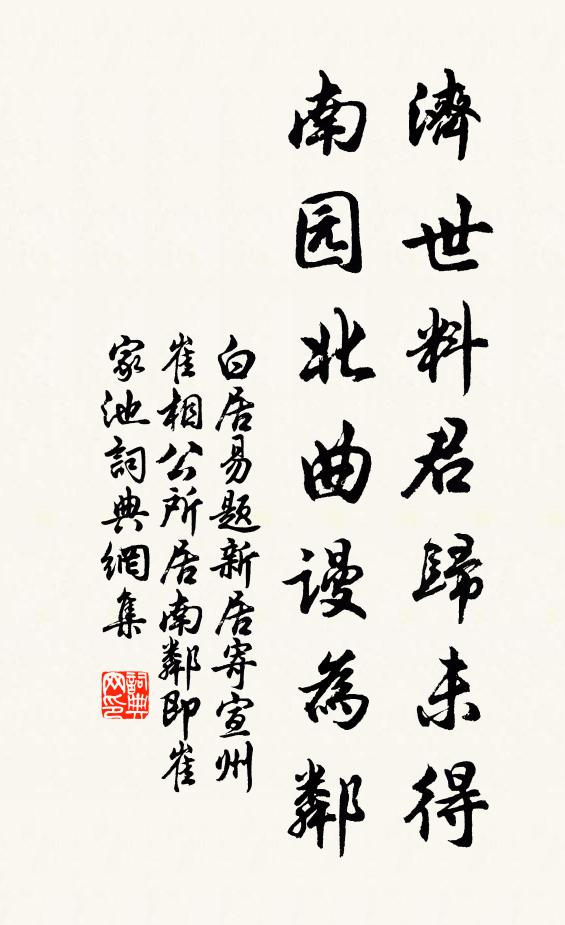 濟世料君歸未得
南园北曲謾為鄰
白居易题新居寄宣州
崔相公所居南鄰即崔
家池詞典網集
詞典网印